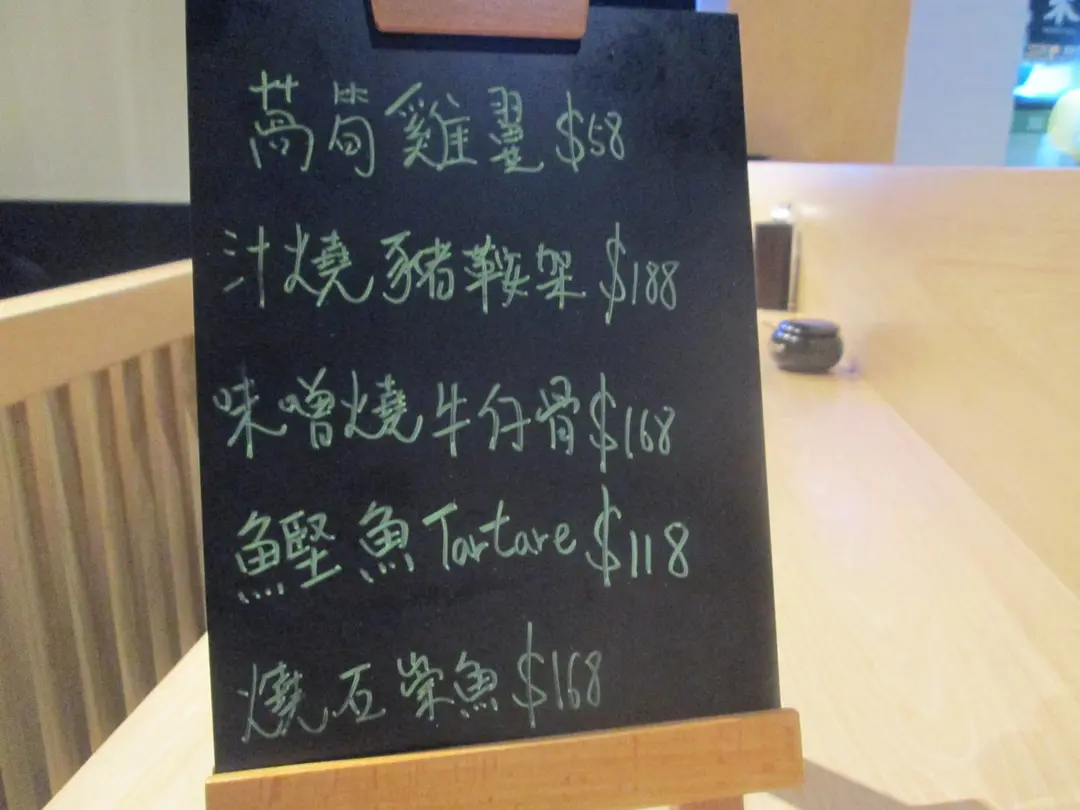 萵荀雞翼 $58
汁燒豬鞍架 $188
味噌燒牛仔骨 $168
鰹魚 Tartare $118
燒石崇魚 $168